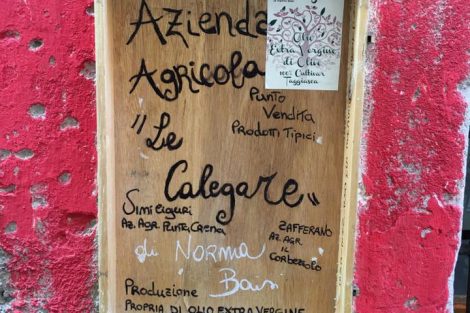 Azienda
Agricola
Olio
Extra Vergine
di Olive
100% Cultivar
Taggiasca
Punto
Vendita
Prodotti Tipici
"Le
Calegare"
Simi Liguri
Az. Agr. Punta Crena
Zafferano
Az. Agr.
il
Corbezzolo
di Norma
Produzione
Propria di olio extravergine